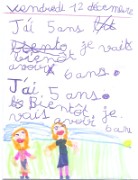 vendredi 12 décembre
J'ai 5 ans
je vais
bientôt
avoir 6 ans.
J'ai 5 ans.
Bientôt
vais je
avoir
6 ans